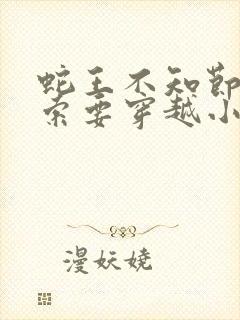 蛇王不知節
索要穿越小
漫妖娆